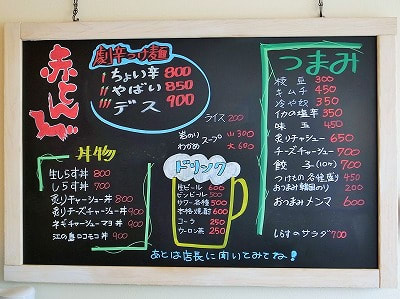 赤とんぼ
劇辛つけ麺
ちょい辛 800
やばい 850
デス 900
ライス 200
岩のり スープ 小 300
わかめ 大 600
丼物
生しらす丼 800
しらす丼 700
炙りチャーシュー丼 800
炙りチーズチャーシュー丼 900
ネギチャーシューマヨ丼 900
江の島ロコモコ丼 900
ドリンク
生ビール 600
ビンビール 500
サワー各種 500
本格焼酎 600
コーラ 250
ウーロン茶 250
つまみ
枝豆 300
キムチ 450
冷や奴 350
イカの塩辛 350
味玉 450
炙りチャーシュー 650
チーズチャーシュー 700
餃子(10ケ) 700
つけもの各種盛り 450
おつまみ韓国のり 200
おつまみメンマ 600
しらすのサラダ 700
あとは店長に聞いてみてネ!